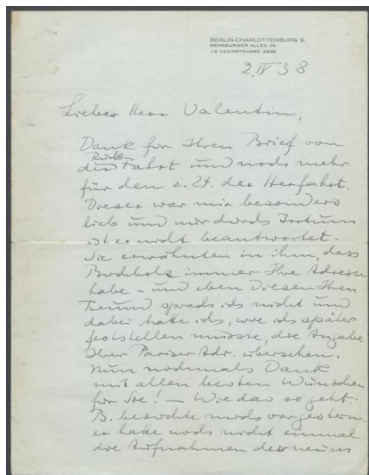 BERLIN-CHARLOTTENBURG 9,
J9 HEERSTRASSE
2 IV 38
Lieber Herr Valentin,
Dank für Ihren Brief von
der Rück
Fahrt und noch mehr
für den z. Zt. der Herfahrt.
Dieser war mir besonders
lieb und nur durch Irrtum
ist er nicht beantwortet.
Sie erwähnten in ihm, dass
Buchholz immer Ihre Adresse
habe – und eben diesen Ihren
Freund sprach ich nicht und
dabei hatte ich, wie ich später
feststellen musste, die Angabe
Ihrer Pariser Adr. übersehen.
Nun nochmals Dank
mit allen besten Wünschen
für Sie! – Wie das so geht:
B. besuchte mich vorgestern
er hatte noch nicht einmal
die Aufnahmen der neuen